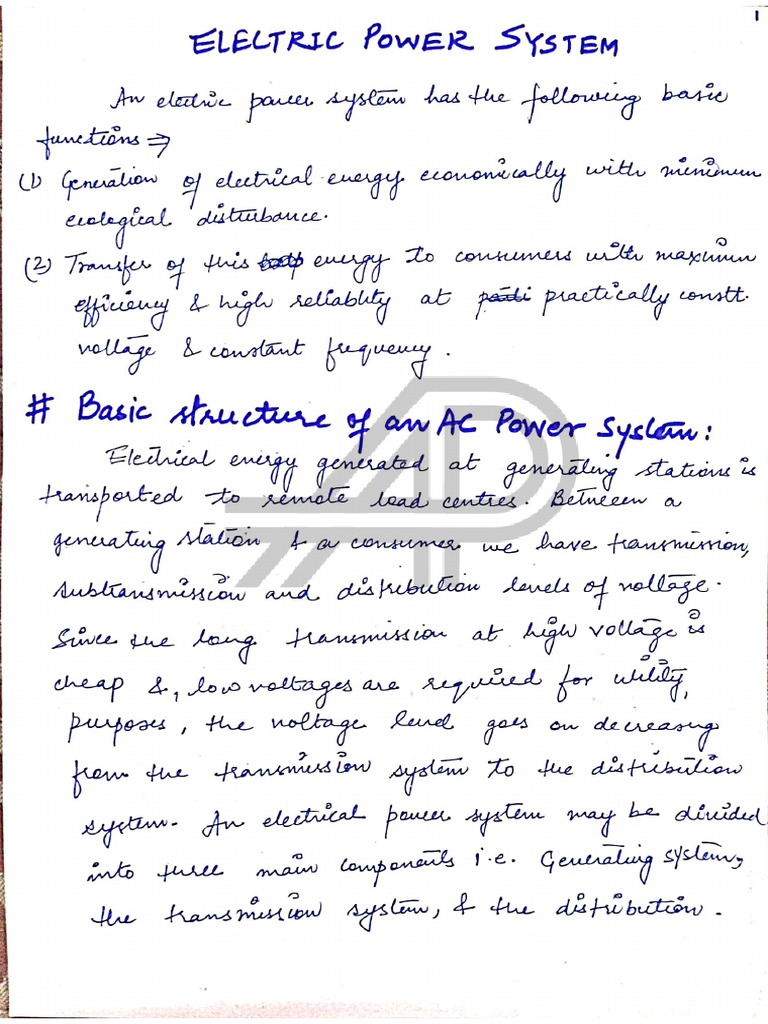 1
ELECTRIC POWER SYSTEM
An electric power system has the following basic
functions ⇒
(1) Generation of electrical energy economically with minimum
ecological disturbance.
(2) Transfer of this energy to consumers with maximum
efficiency & high reliablity at practically constt.
voltage & constant frequency.
# Basic structure of an AC Power System:
Electrical energy generated at generating stations is
transported to remote load centres. Between a
generating station & a consumer we have transmission,
subtransmission and distribution levels of voltage.
Since the long transmission at high voltage is
cheap &, low voltages are required for utility,
purposes, the voltage level goes on decreasing
from the transmission system to the distribution
system. An electrical power system may be divided
into three main components i.e. Generating system,
the transmission system, & the distribution.
AP